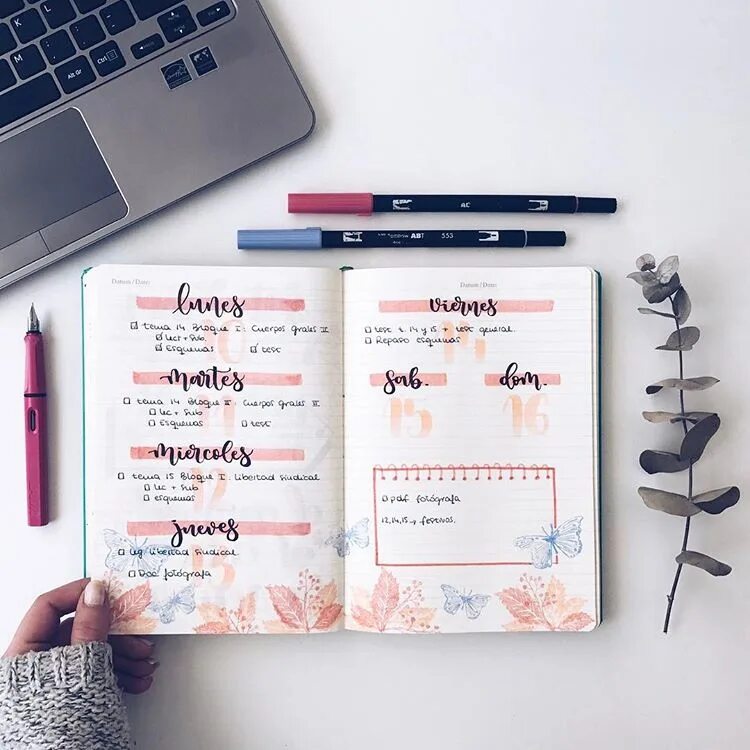 K
L
M
Alt Gr
Ctrl
AC
ABT 553
Datum/Date:
lunes
10
tema 14 Bloque I: Cuerpos grales II
lec + sub.
Esquemas test
martes
11
tema 14 Bloque II: Cuerpos grales II
lec + sub
Esquemas test
miercoles
12
tema 15 Bloque I: libertad sindical
lec + sub
esquemas
jueves
13
ley libertad sindical
Doc fotógrafa
Datum/Date:
viernes
14
test t. 14 y 15 + test general.
Repaso esquemas
Sab. dom.
15 16
pdf fotógrafa
12,14,15 → festivos.